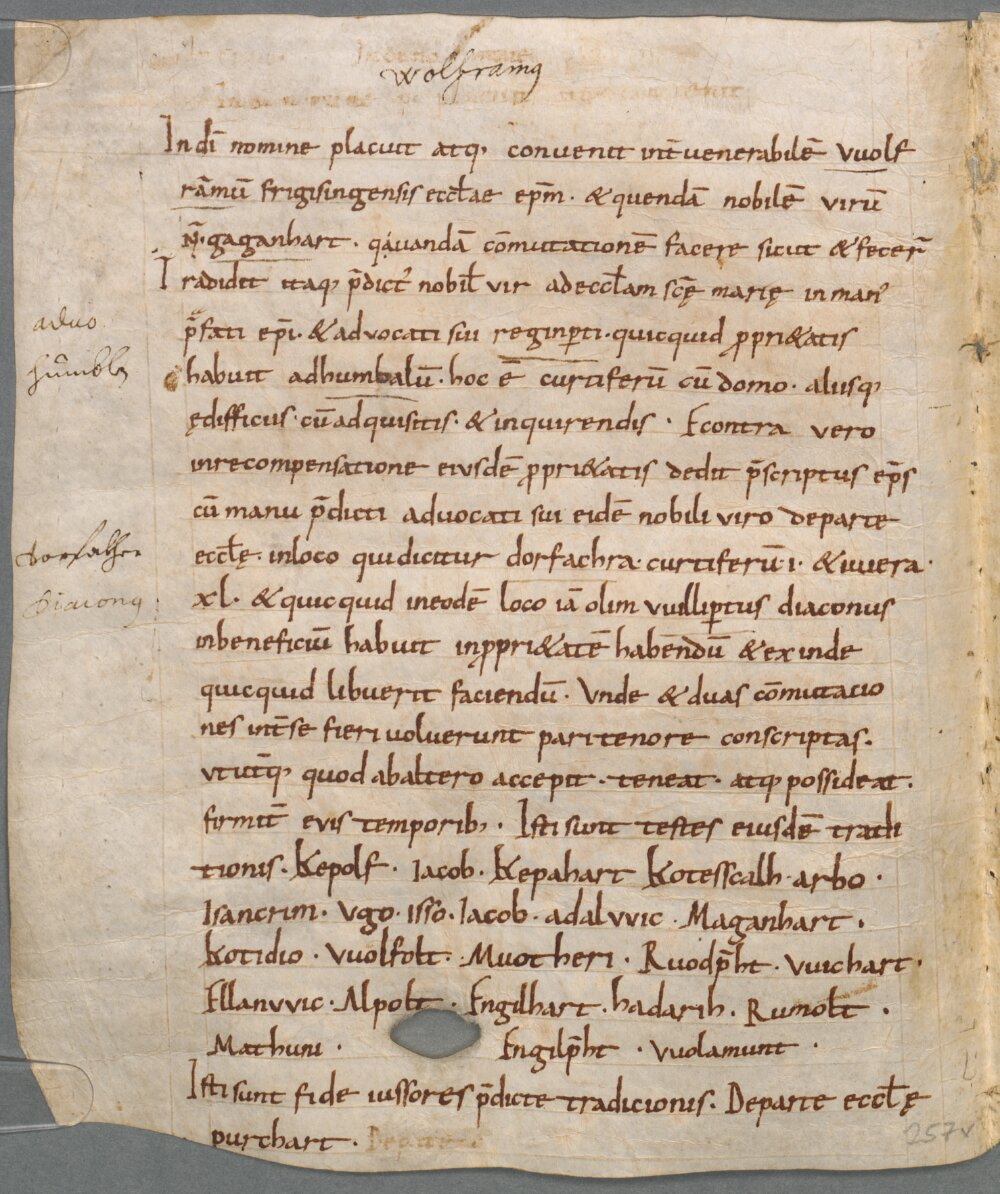 wolframꝰ
In dī nomine placuit atq; convenit int̄ venerabilē Vuolf
rāmū frigisingensis eccl̄ae ep̄m · & quendā nobilē virū
N̄·gaganhart · quandā cōmutationē facere sicut & fecer̄
Tradidit itaq; p̄dict᾽ nobil̄ vir ad eccl̄am sc̄ę marię in man᾽
p̄fati ep̄i · & advocati sui reginꝑti · quicquid ꝓpri&atis
habuit adhumbalū · hoc ē curtiferū cū domo · aliisq;
ędificiis · cū adquisitis · & inquirendis · Econtra vero
inrecompensatione eiusdē ꝓpri&atis dedit p̄scriptus ep̄s
cū manu p̄dicti advocati sui eidē nobili viro departe
eccl̄ę · inloco qui dicitur dorfachra · curtiferū · i · & iuuera ·
xl · & quicquid ineodē loco iā olim vuilliꝑtus diaconus
inbeneficiū habuit inꝓpri&atē habendū & exinde
quicquid libuerit faciendū · Vnde & duas cōmutacio
nes int̄ se fieri voluerunt pari tenore conscriptas ·
vt utq; quod abaltero accepit · teneat · atq; possideat ·
firmit̄ evis temporib; · Isti sunt testes eiusdē tradi
tionis · Kepolf · Iacob · Kepahart Kotesscalh · arbo ·
Isancrim · Vgo · Isso · Iacob · adalvvic · Maganhart ·
Kotidio · Vuolfolt · Muotheri · Ruodp̄ht · Vuichart ·
Ellanvvic · Alpolt · Engilhart · hadarih · Rumolt ·
Mathuni · Engilp̄ht · Vuolamunt ·
Isti sunt fideiussores p̄dicte tradicionis · Departe eccl̄ę
purchart ·
257v